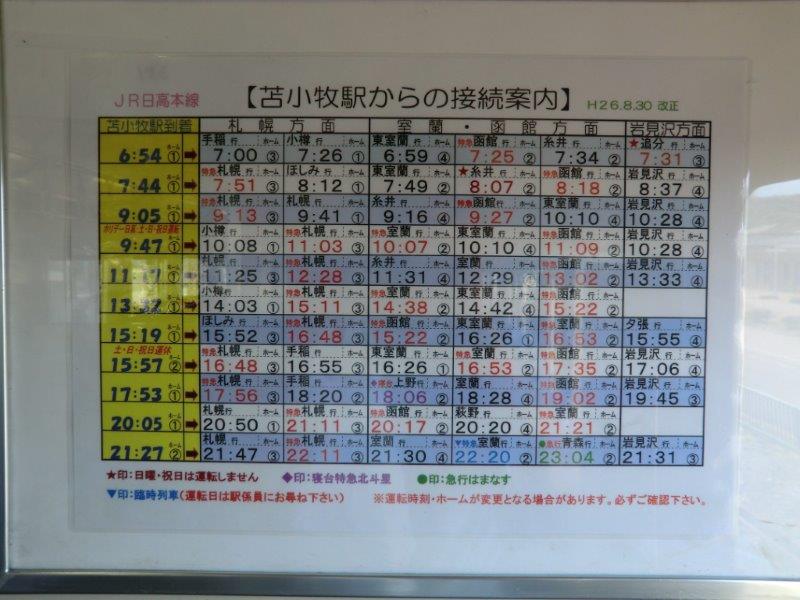 JR日高本線 【苫小牧駅からの接続案内】 H26.8.30 改正
苫小牧駅到着 札幌方面 室蘭・函館方面 岩見沢方面
ホーム 手稲行 ホーム 小樽行 ホーム 東室蘭行 ホーム 特急函館行 ホーム 糸井行 ホーム ★追分行 ホーム
6:54 ① 7:00 ③ 7:26 ① 6:59 ④ 7:25 ② 7:34 ② 7:31 ③
ホーム 特急札幌行 ホーム ほしみ行 ホーム 東室蘭行 ホーム ★糸井行 ホーム 特急函館行 ホーム 岩見沢行 ホーム
7:44 ① 7:51 ③ 8:12 ① 7:49 ② 8:07 ② 8:18 ② 8:37 ④
ホーム 特急札幌行 ホーム 札幌行 ホーム 糸井行 ホーム 特急函館行 ホーム 東室蘭行 ホーム 岩見沢行 ホーム
9:05 ① 9:13 ③ 9:41 ① 9:16 ④ 9:27 ② 10:10 ④ 10:28 ④
小樽行 ホーム 特急札幌行 ホーム 特急室蘭行 ホーム 東室蘭行 ホーム 特急函館行 ホーム 岩見沢行 ホーム
9:47 ① 10:08 ① 11:03 ③ 10:07 ② 10:10 ④ 11:09 ② 10:28 ④
ホーム 札幌行 ホーム 特急札幌行 ホーム 糸井行 ホーム 室蘭行 ホーム 特急函館行 ホーム 岩見沢行 ホーム
11:17 ① 11:25 ③ 12:28 ③ 11:31 ④ 12:29 13:02 ② 13:33 ④
ホーム 小樽行 ホーム 特急札幌行 ホーム 特急室蘭行 ホーム 東室蘭行 ホーム 特急函館行 ホーム
① 14:03 ① 15:11 ③ 14:38 ② 14:42 ④ 15:22 ②
ホーム ほしみ行 ホーム 特急札幌行 ホーム 特急函館行 ホーム 東室蘭行 ホーム 特急室蘭行 ホーム 夕張行 ホーム
15:19 ① 15:52 ③ 16:48 ③ 15:22 ② 16:26 ① 16:53 ② 15:55 ④
土・日・祝日運休 ホーム 特急札幌行 ホーム 手稲行 ホーム 東室蘭行 ホーム 特急室蘭行 ホーム 特急函館行 ホーム 岩見沢行 ホーム
15:57 ② 16:48 ③ 16:55 ③ 16:26 ① 16:53 ② 17:35 ② 17:06 ④
ホーム 特急札幌行 ホーム 手稲行 ホーム ◆寝台上野行 ホーム 室蘭行 ホーム 特急函館行 ホーム 岩見沢行 ホーム
17:53 ① 17:56 ③ 18:20 ② 18:06 ② 18:28 ④ 19:02 ② 19:45 ③
ホーム 札幌行 ホーム 特急札幌行 ホーム 特急函館行 ホーム 萩野行 ホーム 特急室蘭行 ホーム
20:05 ① 20:50 ① 21:11 ③ 20:17 ② 20:20 ④ 21:21 ②
ホーム 札幌行 ホーム 特急札幌行 ホーム 室蘭行 ホーム ▼特急室蘭行 ホーム ●急行青森行 ホーム 岩見沢行 ホーム
21:27 ② 21:47 ③ 22:11 ③ 21:30 ④ 22:20 ② 23:04 ② 21:31 ③
★印：日曜・祝日は運転しません ◆印：寝台特急北斗星 ●印：急行はまなす
▼印：臨時列車（運転日は駅係員にお尋ね下さい） ※運転時刻・ホームが変更となる場合があります。必ずご確認下さい。